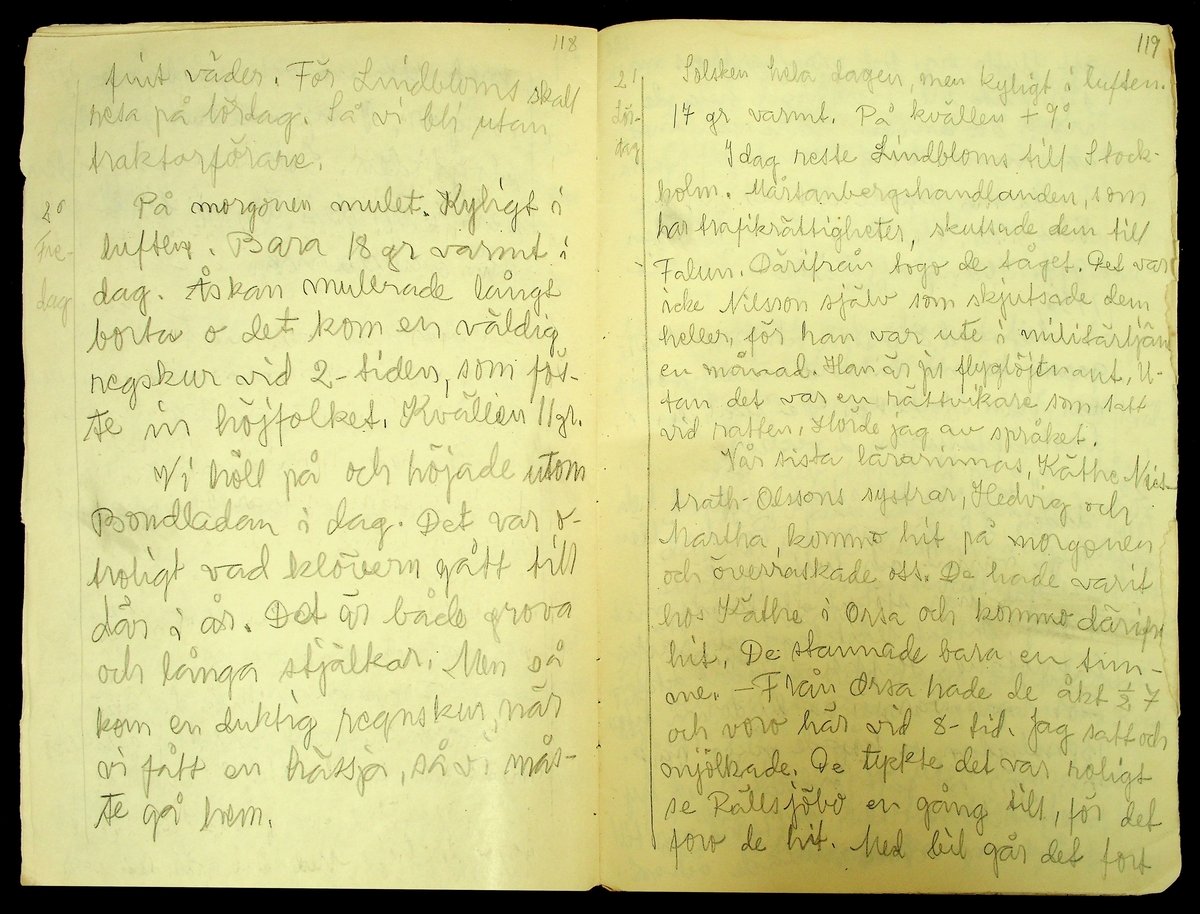 118
fint väder. För Lindbloms skall
resa på lördag. Så vi bli utan
traktorförare.
20
Fre-
dag
På morgonen mulet. Kyligt i
luften. Bara 18 gr varmt i
dag. Åskan mullrade långt
borta o det kom en väldig
regskur vid 2-tiden, som fös-
te in höjfolket. Kvällen 11 gr.
Vi höll på och höjade utom
Bondladan i dag. Det var o-
troligt vad klövern gått till
där i år. Det är både grova
och långa stjälkar. Men så
kom en duktig regnskur, när
vi fått en hässja, så vi mås-
te gå hem.
119
21
Lör-
dag
Solsken hela dagen, men kyligt i luften.
17 gr varmt. På kvällen + 9°.
Idag reste Lindbloms till Stock-
holm. Mårtanbergshandlanden, som
har trafikrättigheter, skutsade dem till
Falun. Därifrån togo de tåget. Det var
icke Nilsson själv som skjutsade dem
heller, för han var ute i militärtjän
en månad. Han är ju flyglöjtnant. U-
tan det var en rättvikare som satt
vid ratten. Hörde jag av språket.
Vår sista lärarinnas, Käthe
-Olssons systrar, Hedvig och
Martha, kommo hit på morgonen
och överraskade oss. De hade varit
hos Käthe i Orsa och kommo därifr
hit. De stannade bara en tim-
me. - Från Orsa hade de åkt ½ 7
och voro här vid 8-tid. Jag satt och
mjölkade. De tyckte det var roligt
se Rällsjöbo en gång till, för det
foro de hit. Med bil går det fort